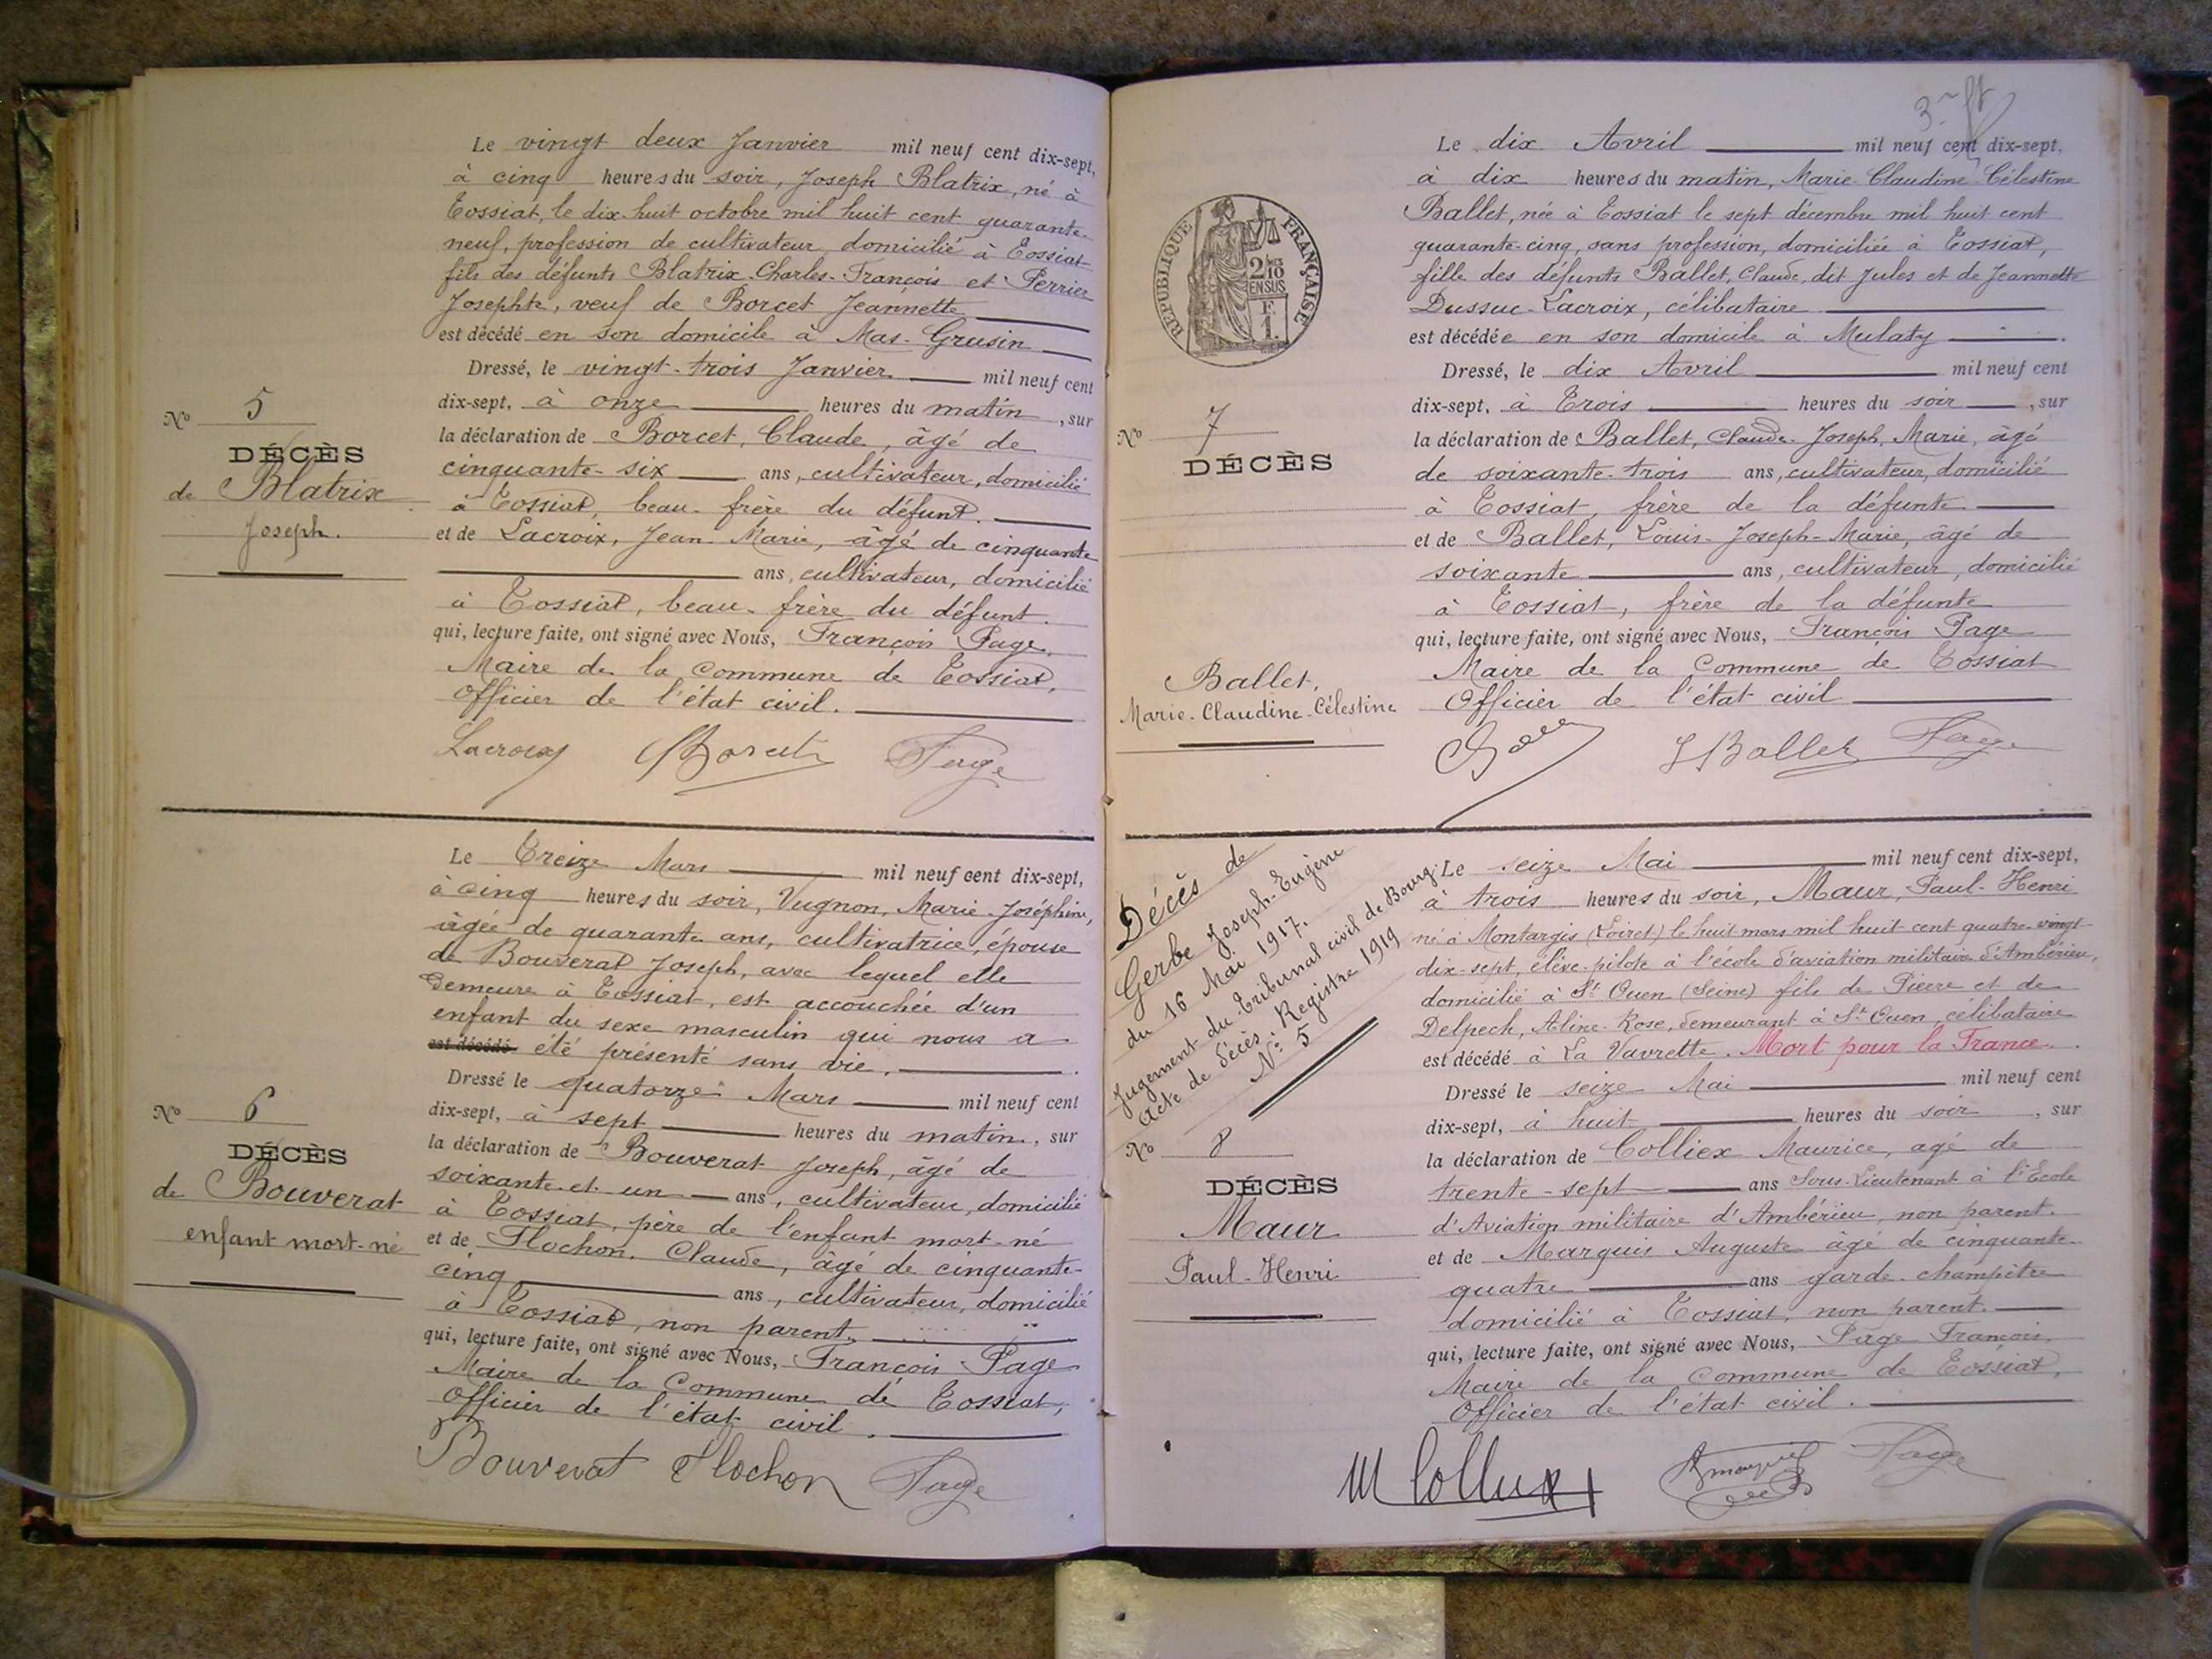 Le vingt deux Janvier mil neuf cent dix-sept,
à cinq heures du soir, Joseph Blatrix, né à
Tossiat, le dix-huit octobre mil huit cent quarante-
neuf, profession de cultivateur, domicilié à Tossiat
fils des défunts Blatrix Charles-François et Perrier
Josephte, veuf de Borcet Jeannette
est décédé en son domicile à Mas-Grusin
Dressé, le vingt-trois Janvier mil neuf cent
dix-sept, à onze heures du matin, sur
la déclaration de Borcet, Claude, âgé de
cinquante-six ans, cultivateur, domicilié
à Tossiat, beau-frère du défunt.
et de Lacroix, Jean Marie, âgé de cinquante
ans, cultivateur, domicilié
à Tossiat, beau-frère du défunt.
qui, lecture faite, ont signé avec Nous, François Page,
Maire de la Commune de Tossiat,
Officier de l'état civil.
Lacroix Page
No 5
DÉCÈS
de Blatrix
Joseph.
Le Treize Mars mil neuf cent dix-sept,
à cinq heures du soir, Vugnon, Marie-Joséphine,
âgée de quarante ans, cultivatrice, épouse
de Bouverat Joseph, avec lequel elle
demeure à Tossiat, est accouchée d'un
enfant du sexe masculin qui nous a
est décédé été présenté sans vie.
Dressé le quatorze Mars mil neuf cent
dix-sept, à sept heures du matin, sur
la déclaration de Bouverat Joseph, âgé de
soixante et un ans, cultivateur, domicilié
à Tossiat, père de l'enfant mort-né
et de Flochon, Claude, âgé de cinquante-
cinq ans, cultivateur, domicilié
à Tossiat, non parent.
qui, lecture faite, ont signé avec Nous, François Page
Maire de la Commune de Tossiat,
Officier de l'état civil.
Bouverat Flochon Page
No 6
DÉCÈS
de Bouverat
enfant mort-né
Le dix Avril mil neuf cent dix-sept,
à dix heures du matin, Marie-Claudine-Célestine
Ballet, née à Tossiat le sept décembre mil huit cent
quarante-cinq, sans profession, domiciliée à Tossiat,
fille des défunts Ballet, Claude, dit Jules et de Jeannette
Dussuc-Lacroix, célibataire
est décédée en son domicile à Mulaty
Dressé, le dix Avril mil neuf cent
dix-sept, à Trois heures du soir, sur
la déclaration de Ballet, Claude-Joseph, Marie, âgé
de soixante-trois ans, cultivateur, domicilié
à Tossiat, frère de la défunte
et de Ballet, Louis-Joseph-Marie, âgé de
soixante ans, cultivateur, domicilié
à Tossiat, frère de la défunte
qui, lecture faite, ont signé avec Nous, François Page
Maire de la Commune de Tossiat
Officier de l'état civil
Ballet Page
RÉPUBLIQUE FRANÇAISE
2/10 EN SUS
F. 1.
No 7
DÉCÈS
Ballet,
Marie-Claudine-Célestine
Le seize Mai mil neuf cent dix-sept,
à trois heures du soir, Maur, Paul-Henri
né à Montargis (Loiret) le huit mars mil huit cent quatre-vingt-
dix-sept, élève-pilote à l'école d'aviation militaire d'Ambérieu,
domicilié à St Ouen (Seine) fils de Pierre et de
Delpech, Aline-Rose, demeurant à St Ouen, célibataire
est décédé à La Vavrette. Mort pour la France.
Dressé le seize Mai mil neuf cent
dix-sept, à huit heures du soir, sur
la déclaration de Colliex Maurice, agé de
trente-sept ans Sous-Lieutenant à l'Ecole
d'Aviation militaire d'Ambérieu, non parent.
et de Marquis Auguste âgé de cinquante-
quatre ans garde-champêtre
domicilié à Tossiat, non parent.
qui, lecture faite, ont signé avec Nous, Page François,
Maire de la Commune de Tossiat,
Officier de l'état civil.
Page
Décès de
Gerbe Joseph-Eugène
du 16 Mai 1917.
Jugement du Tribunal civil de Bourg.
Acte de décès: Registre 1919
No: 5
No 8
DÉCÈS
Maur
Paul-Henri